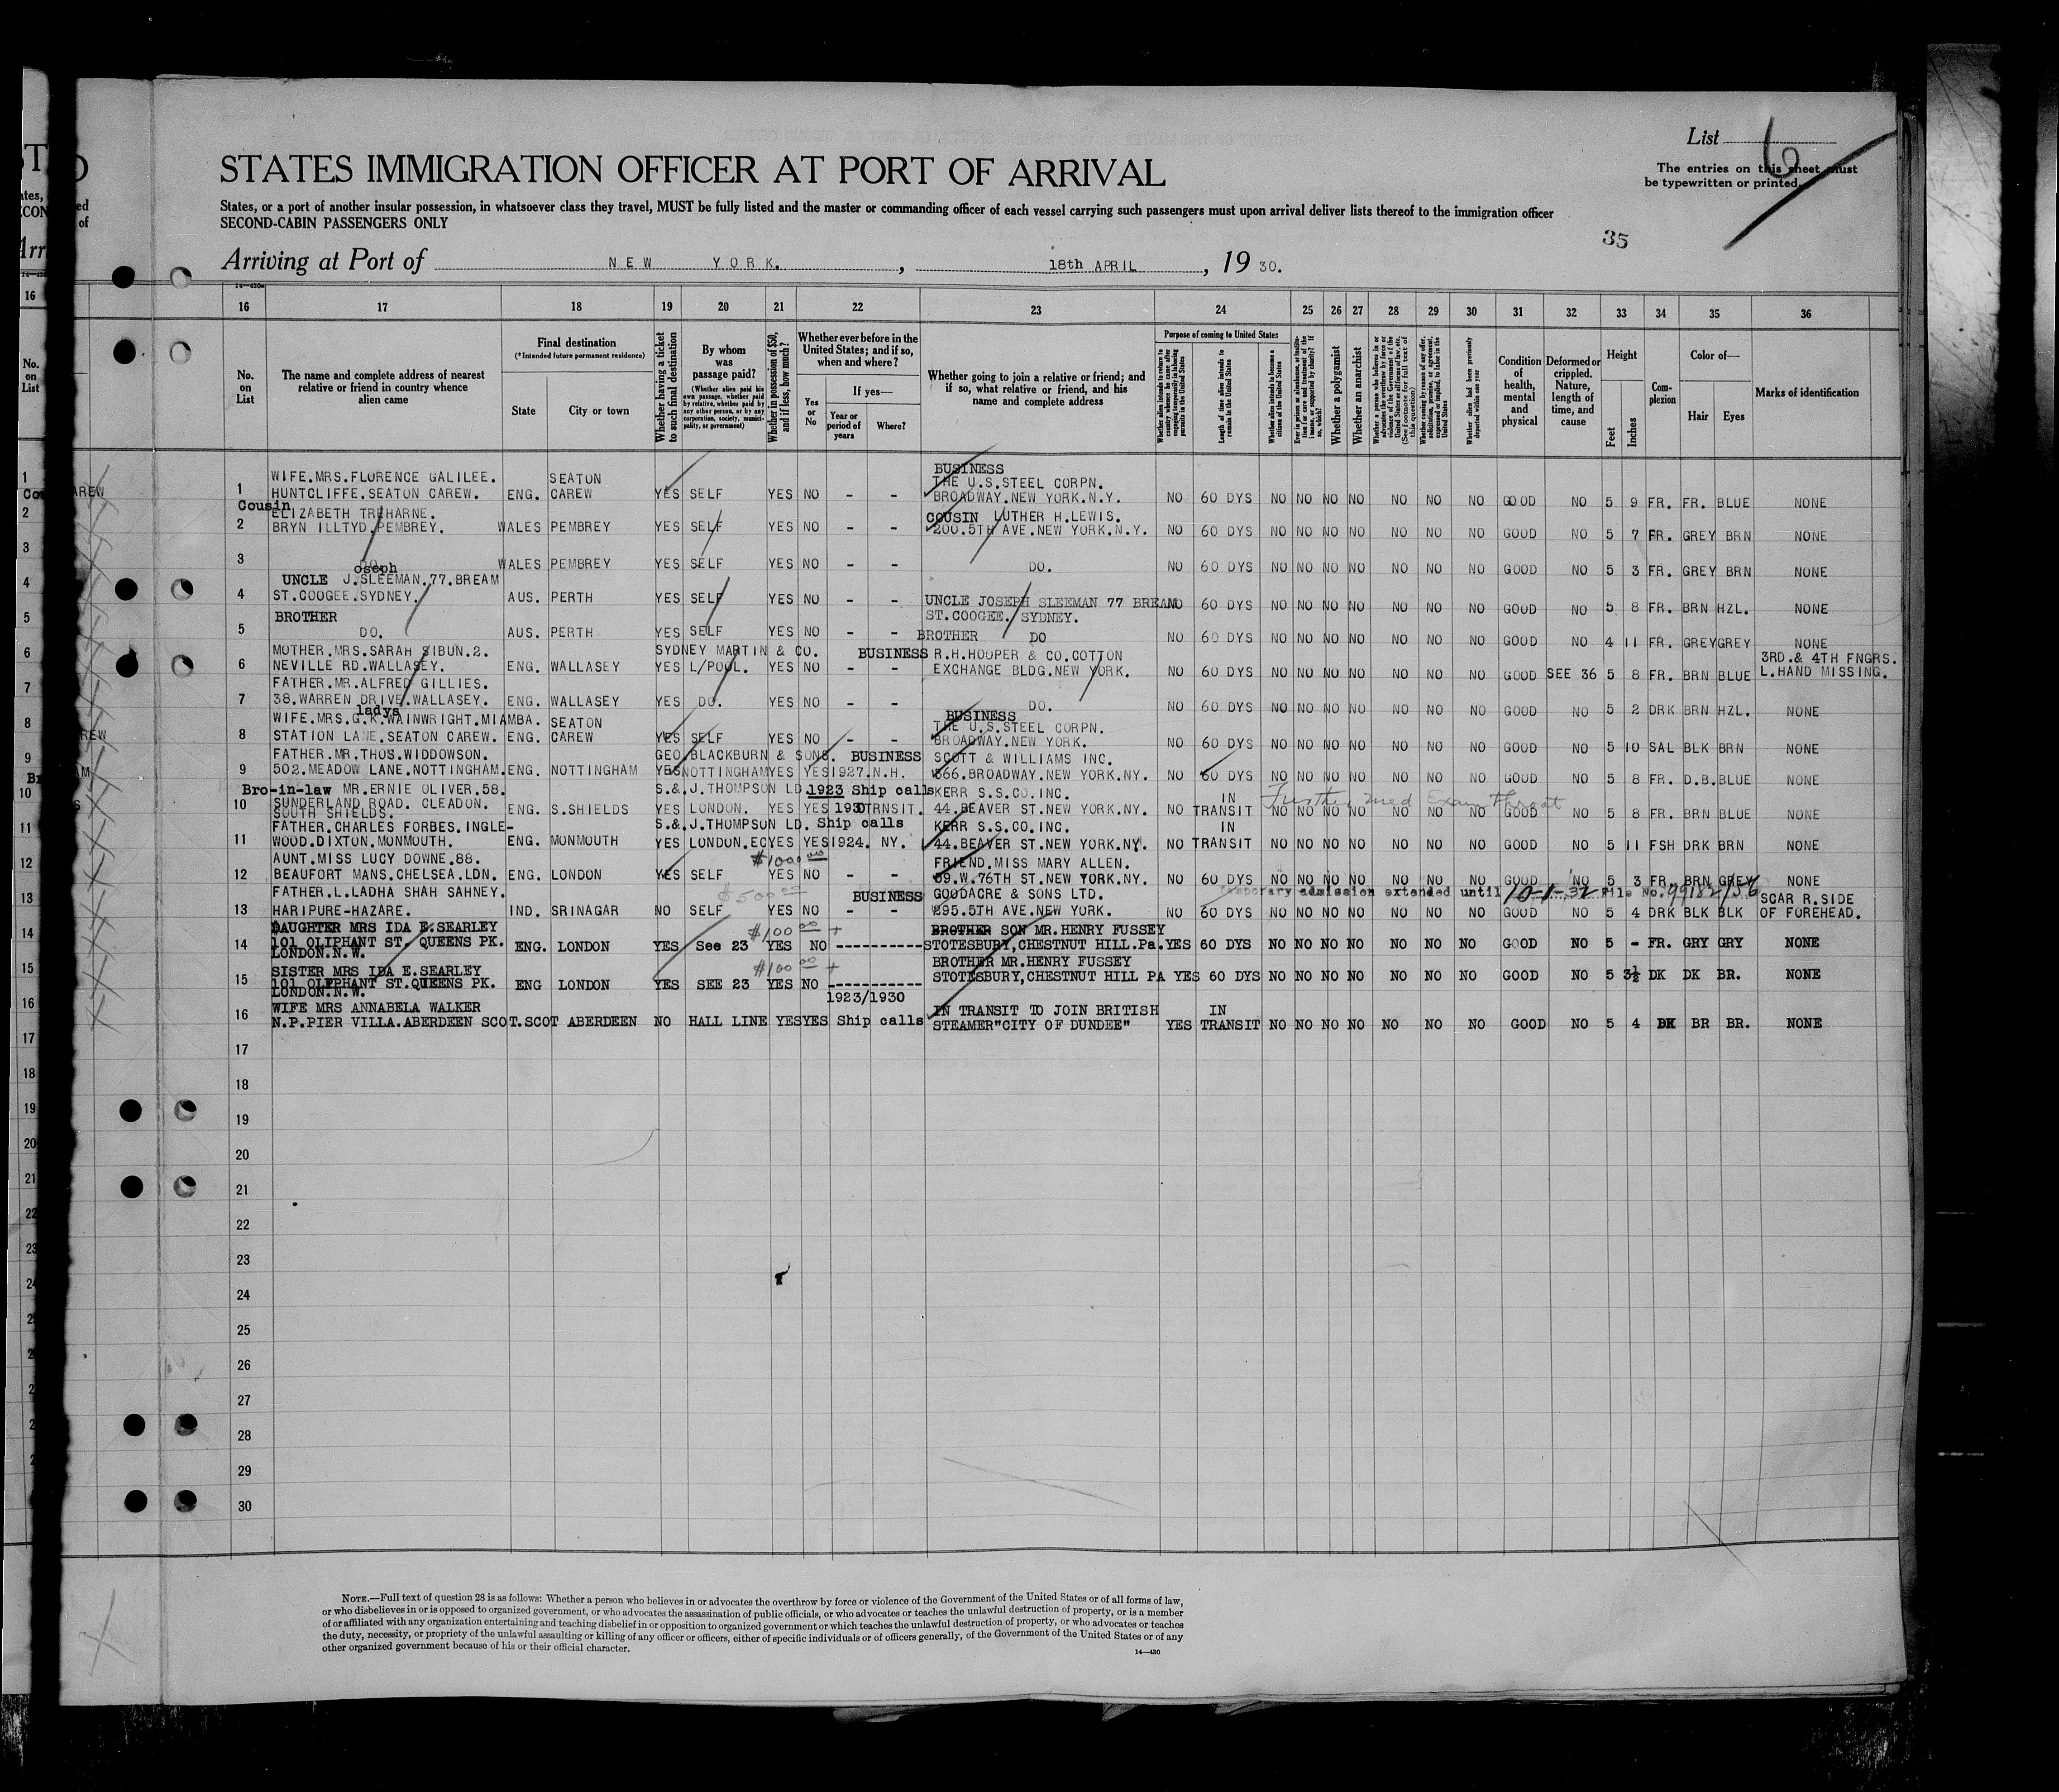 List 6
The entries on this sheet must
be typewritten or printed.
STATES IMMIGRATION OFFICER AT PORT OF ARRIVAL
States, or a port of another insular possession, in whatsoever class they travel, MUST be fully listed and the master or commanding officer of each vessel carrying such passengers must upon arrival deliver lists thereof to the immigration officer
SECOND-CABIN PASSENGERS ONLY
35
Arriving at Port of NEW YORK. , 18th APRIL , 19 30.
16 17 18 19 20 21 22 23 24 25 26 27 28 29 30 31 32 33 34 35 36
No. on List
The name and complete address of nearest relative or friend in country whence alien came
Final destination
(*Intended future permanent residence)
State
City or town
Whether having a ticket to such final destination
By whom was passage paid?
(Whether alien paid his own passage, whether paid by relative, whether paid by any other person, or by any corporation, society, municipality, or government)
Whether in possession of $50, and if less, how much?
Whether ever before in the United States; and if so, when and where?
Yes or No
If yes—
Year or period of years
Where?
Whether going to join a relative or friend; and if so, what relative or friend, and his name and complete address
Purpose of coming to United States
Whether alien intends to return to country whence he came after engaging temporarily in laboring pursuits in the United States
Length of time alien intends to remain in the United States
Whether alien intends to become a citizen of the United States
Whether a polygamist
Whether an anarchist
Whether alien had been previously deported within one year
Condition of health, mental and physical
Deformed or crippled. Nature, length of time, and cause
Height
Feet
Inches
Complexion
Color of—
Hair
Eyes
Marks of identification
WIFE.MRS.FLORENCE GALILEE. SEATON BUSINESS THE U.S.STEEL CORPN.
1 HUNTCLIFFE.SEATON CAREW. ENG. CAREW YES SELF YES NO - - BROADWAY.NEW YORK.N.Y. NO 60 DYS NO NO NO NO NO NO NO GOOD NO 5 9 FR. FR. BLUE NONE
Cousin ELIZABETH TREHARNE. COUSIN LUTHER H.LEWIS.
2 BRYN ILLTYD.PEMBREY. WALES PEMBREY YES SELF YES NO - - 200.5TH AVE.NEW YORK.N.Y. NO 60 DYS NO NO NO NO NO NO NO GOOD NO 5 7 FR. GREY BRN NONE
3 DO. WALES PEMBREY YES SELF YES NO - - DO. NO 60 DYS NO NO NO NO NO NO NO GOOD NO 5 3 FR. GREY BRN NONE
oseph
UNCLE J.SLEEMAN.77.BREAM
4 ST.COOGEE.SYDNEY. AUS. PERTH YES SELF YES NO - - UNCLE JOSEPH SLEEMAN 77 BREAM NO 60 DYS NO NO NO NO NO NO NO GOOD NO 5 8 FR. BRN HZL. NONE
ST.COOGEE. SYDNEY.
BROTHER
5 DO. AUS. PERTH YES SELF YES NO - - BROTHER DO NO 60 DYS NO NO NO NO NO NO NO GOOD NO 4 11 FR. GREY GREY NONE
MOTHER.MRS.SARAH SIBUN.2. SYDNEY MARTIN & CO. BUSINESS R.H.HOOPER & CO.COTTON 3RD.& 4TH FNGRS.
6 NEVILLE RD.WALLASEY. ENG. WALLASEY YES L/POOL. YES NO - - EXCHANGE BLDG.NEW YORK. NO 60 DYS NO NO NO NO NO NO NO GOOD SEE 36 5 8 FR. BRN BLUE L.HAND MISSING.
FATHER.MR.ALFRED GILLIES.
7 38.WARREN DRIVE.WALLASEY. ENG. WALLASEY YES DO. YES NO - - DO. NO 60 DYS NO NO NO NO NO NO NO GOOD NO 5 2 DRK BRN HZL. NONE
ladys
WIFE.MRS.G.K.WAINWRIGHT.MIAMBA. SEATON BUSINESS THE U.S.STEEL CORPN.
8 STATION LANE.SEATON CAREW. ENG. CAREW YES SELF YES NO - - BROADWAY.NEW YORK. NO 60 DYS NO NO NO NO NO NO NO GOOD NO 5 10 SAL BLK BRN NONE
FATHER.MR.THOS.WIDDOWSON. GEO.BLACKBURN & SONS. BUSINESS SCOTT & WILLIAMS INC.
9 502.MEADOW LANE.NOTTINGHAM. ENG. NOTTINGHAM YES NOTTINGHAM YES YES 1927.N.H. 366.BROADWAY.NEW YORK.NY. NO 60 DYS NO NO NO NO NO NO NO GOOD NO 5 8 FR. D.B. BLUE NONE
Bro-in-law MR.ERNIE OLIVER.58. S.&.J.THOMPSON LD. 1923 Ship calls KERR S.S.CO.INC. IN Further med Exam throat
10 SUNDERLAND ROAD. CLEADON. SOUTH SHIELDS. ENG. S.SHIELDS YES LONDON. YES YES 1930 TRNSIT. 44.BEAVER ST.NEW YORK.NY. NO TRANSIT NO NO NO NO NO NO NO GOOD NO 5 8 FR. BRN BLUE NONE
FATHER.CHARLES FORBES.INGLE- S.&.J.THOMPSON LD. Ship calls KERR S.S.CO.INC. IN
11 WOOD.DIXTON.MONMOUTH. ENG. MONMOUTH YES LONDON.EC YES YES 1924. NY. 44.BEAVER ST.NEW YORK.NY. NO TRANSIT NO NO NO NO NO NO NO GOOD NO 5 11 FSH DRK BRN NONE
AUNT.MISS LUCY DOWNE.88. $1000 00 FRIEND.MISS MARY ALLEN.
12 BEAUFORT MANS.CHELSEA.LDN. ENG. LONDON YES SELF YES NO - - 69.W.76TH ST.NEW YORK.NY. NO 60 DYS NO NO NO NO NO NO NO GOOD NO 5 3 FR. BRN GREY NONE
FATHER.L.LADHA SHAH SAHNEY. $500 00 BUSINESS GOODACRE & SONS LTD. Temporary admission extended until 10-1-32 File No. 99182/156 SCAR R.SIDE
13 HARIPURE-HAZARE. IND. SRINAGAR NO SELF YES NO - - 295.5TH AVE.NEW YORK. NO 60 DYS NO NO NO NO NO NO NO GOOD NO 5 4 DRK BLK BLK OF FOREHEAD.
DAUGHTER MRS IDA E.SEARLEY $100 00 + BROTHER SON MR.HENRY FUSSEY
14 101 OLIPHANT ST. QUEENS PK. LONDON.N.W. ENG. LONDON YES See 23 YES NO ----------- STOTESBURY,CHESTNUT HILL.Pa. YES 60 DYS NO NO NO NO NO NO NO GOOD NO 5 - FR. GRY GRY NONE
SISTER MRS IDA E.SEARLEY $100 00 + BROTHER MR.HENRY FUSSEY
15 101 OLIPHANT ST.QUEENS PK. LONDON.N.W. ENG LONDON YES SEE 23 YES NO ------------ STOTESBURY,CHESTNUT HILL PA YES 60 DYS NO NO NO NO NO NO NO GOOD NO 5 3½ DK DK BR. NONE
WIFE MRS ANNABELA WALKER 1923/1930 IN TRANSIT TO JOIN BRITISH IN
16 N.P.PIER VILLA.ABERDEEN SCOT. SCOT ABERDEEN NO HALL LINE YES YES Ship calls STEAMER"CITY OF DUNDEE" YES TRANSIT NO NO NO NO NO NO NO GOOD NO 5 4 DK BR BR. NONE
17
18
19
20
21
22
23
24
25
26
27
28
29
30
NOTE.—Full text of question 28 is as follows: Whether a person who believes in or advocates the overthrow by force or violence of the Government of the United States or of all forms of law,
or who disbelieves in or is opposed to organized government, or who advocates the assassination of public officials, or who advocates or teaches the unlawful destruction of property, or is a member
of or affiliated with any organization entertaining and teaching disbelief in or opposition to organized government or which teaches the unlawful destruction of property, or who advocates or teaches
the duty, necessity, or propriety of the unlawful assaulting or killing of any officer or officers, either of specific individuals or of officers generally, of the Government of the United States or of any
other organized government because of his or their official character.
14—430